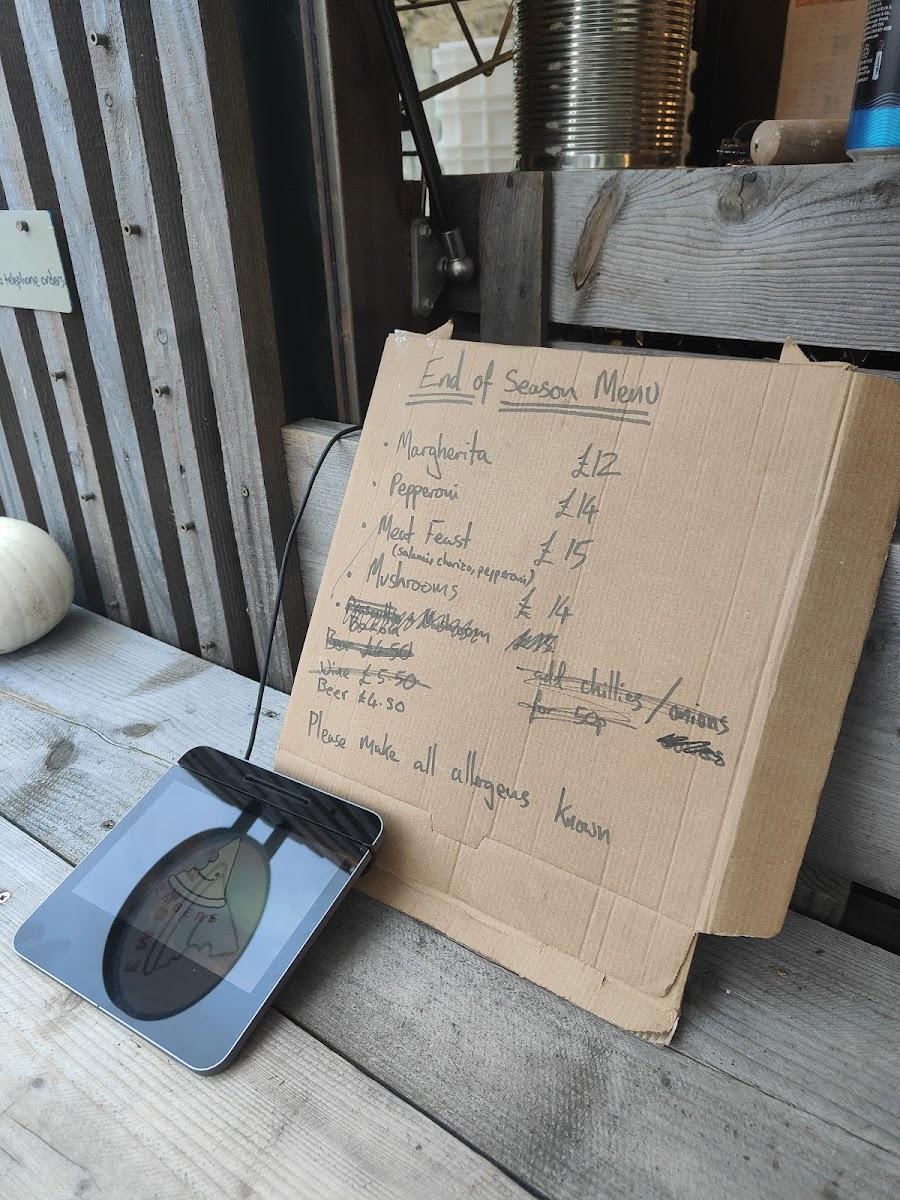 telephone orders
End of Season Menu
• Margherita £12
• Pepperoni £14
• Meat Feast £15
(salami, chorizo, pepperoni)
• Mushrooms £14
• Mushroom
Beer £6.50
Wine £5.50
Beer £4.50
add chillies / onions
for 50p
Please make all allergens known
EMBERS